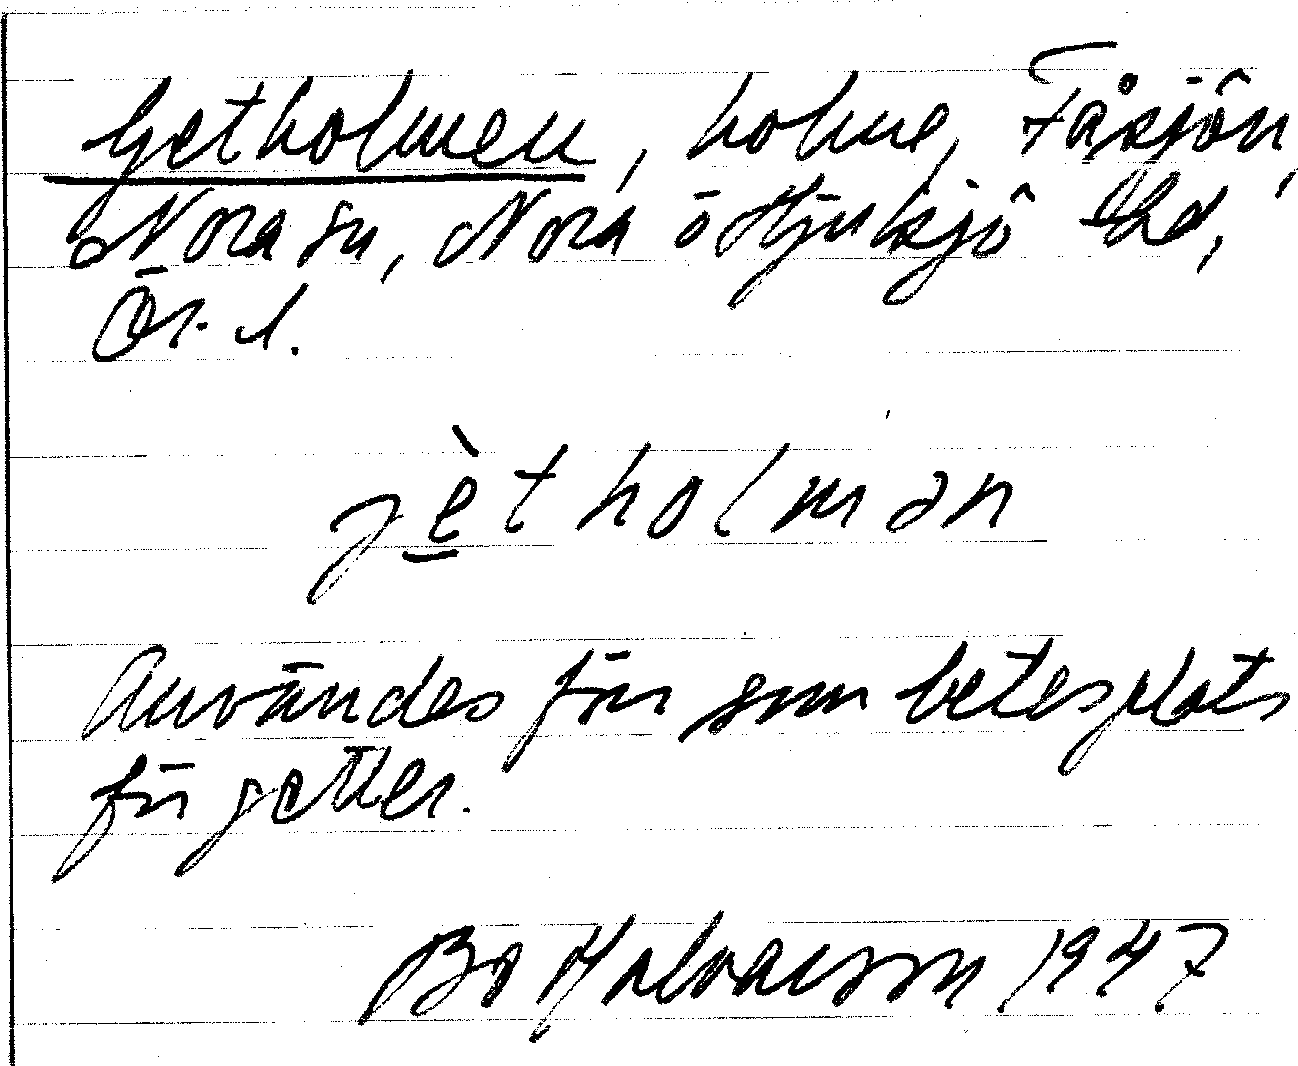 Getholmen, holme, Fåsjön,
Nora sn, Nora o Hjulsjö hd,
Ör. l.
jètholmən
Användes förr som betesplats
för getter.
Bo Halvarsson 1947